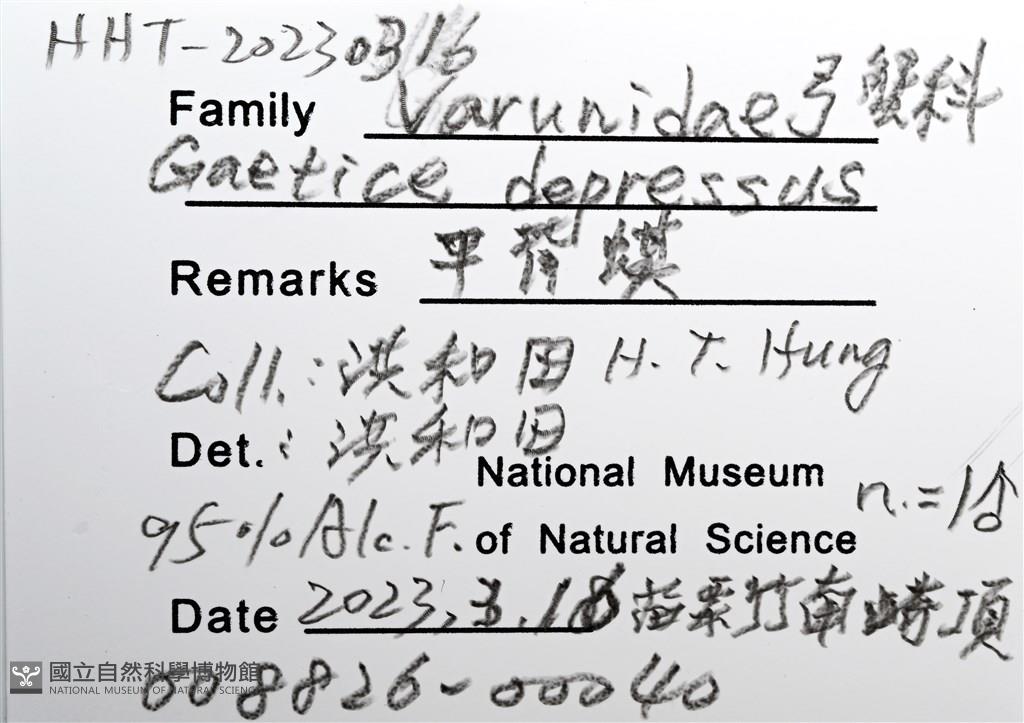 HHT-20230316
Family Varunidae弓蟹科
Gaetice depressus
Remarks 平背蜞
Coll.:洪和田 H. T. Hung
Det.: 洪和田
National Museum n.=1♂
95% Alc. F. of Natural Science
Date 2023.3.18 苗栗竹南崎頂
國立自然科學博物館
NATIONAL MUSEUM OF NATURAL SCIENCE
008826-00040